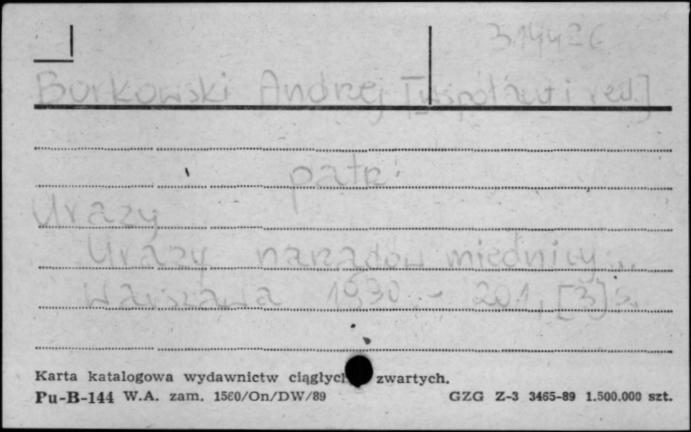 314426
Borkowski Andrzej [współaut i red.]
patrz:
Urazy
Urazy narządów miednicy...
Warszawa 1990 - 201, [3] s.
Karta katalogowa wydawnictw ciągłych zwartych.
Pu-B-144 W.A. zam. 1560/On/DW/89 GZG Z-3 3465-89 1.500.000 szt.